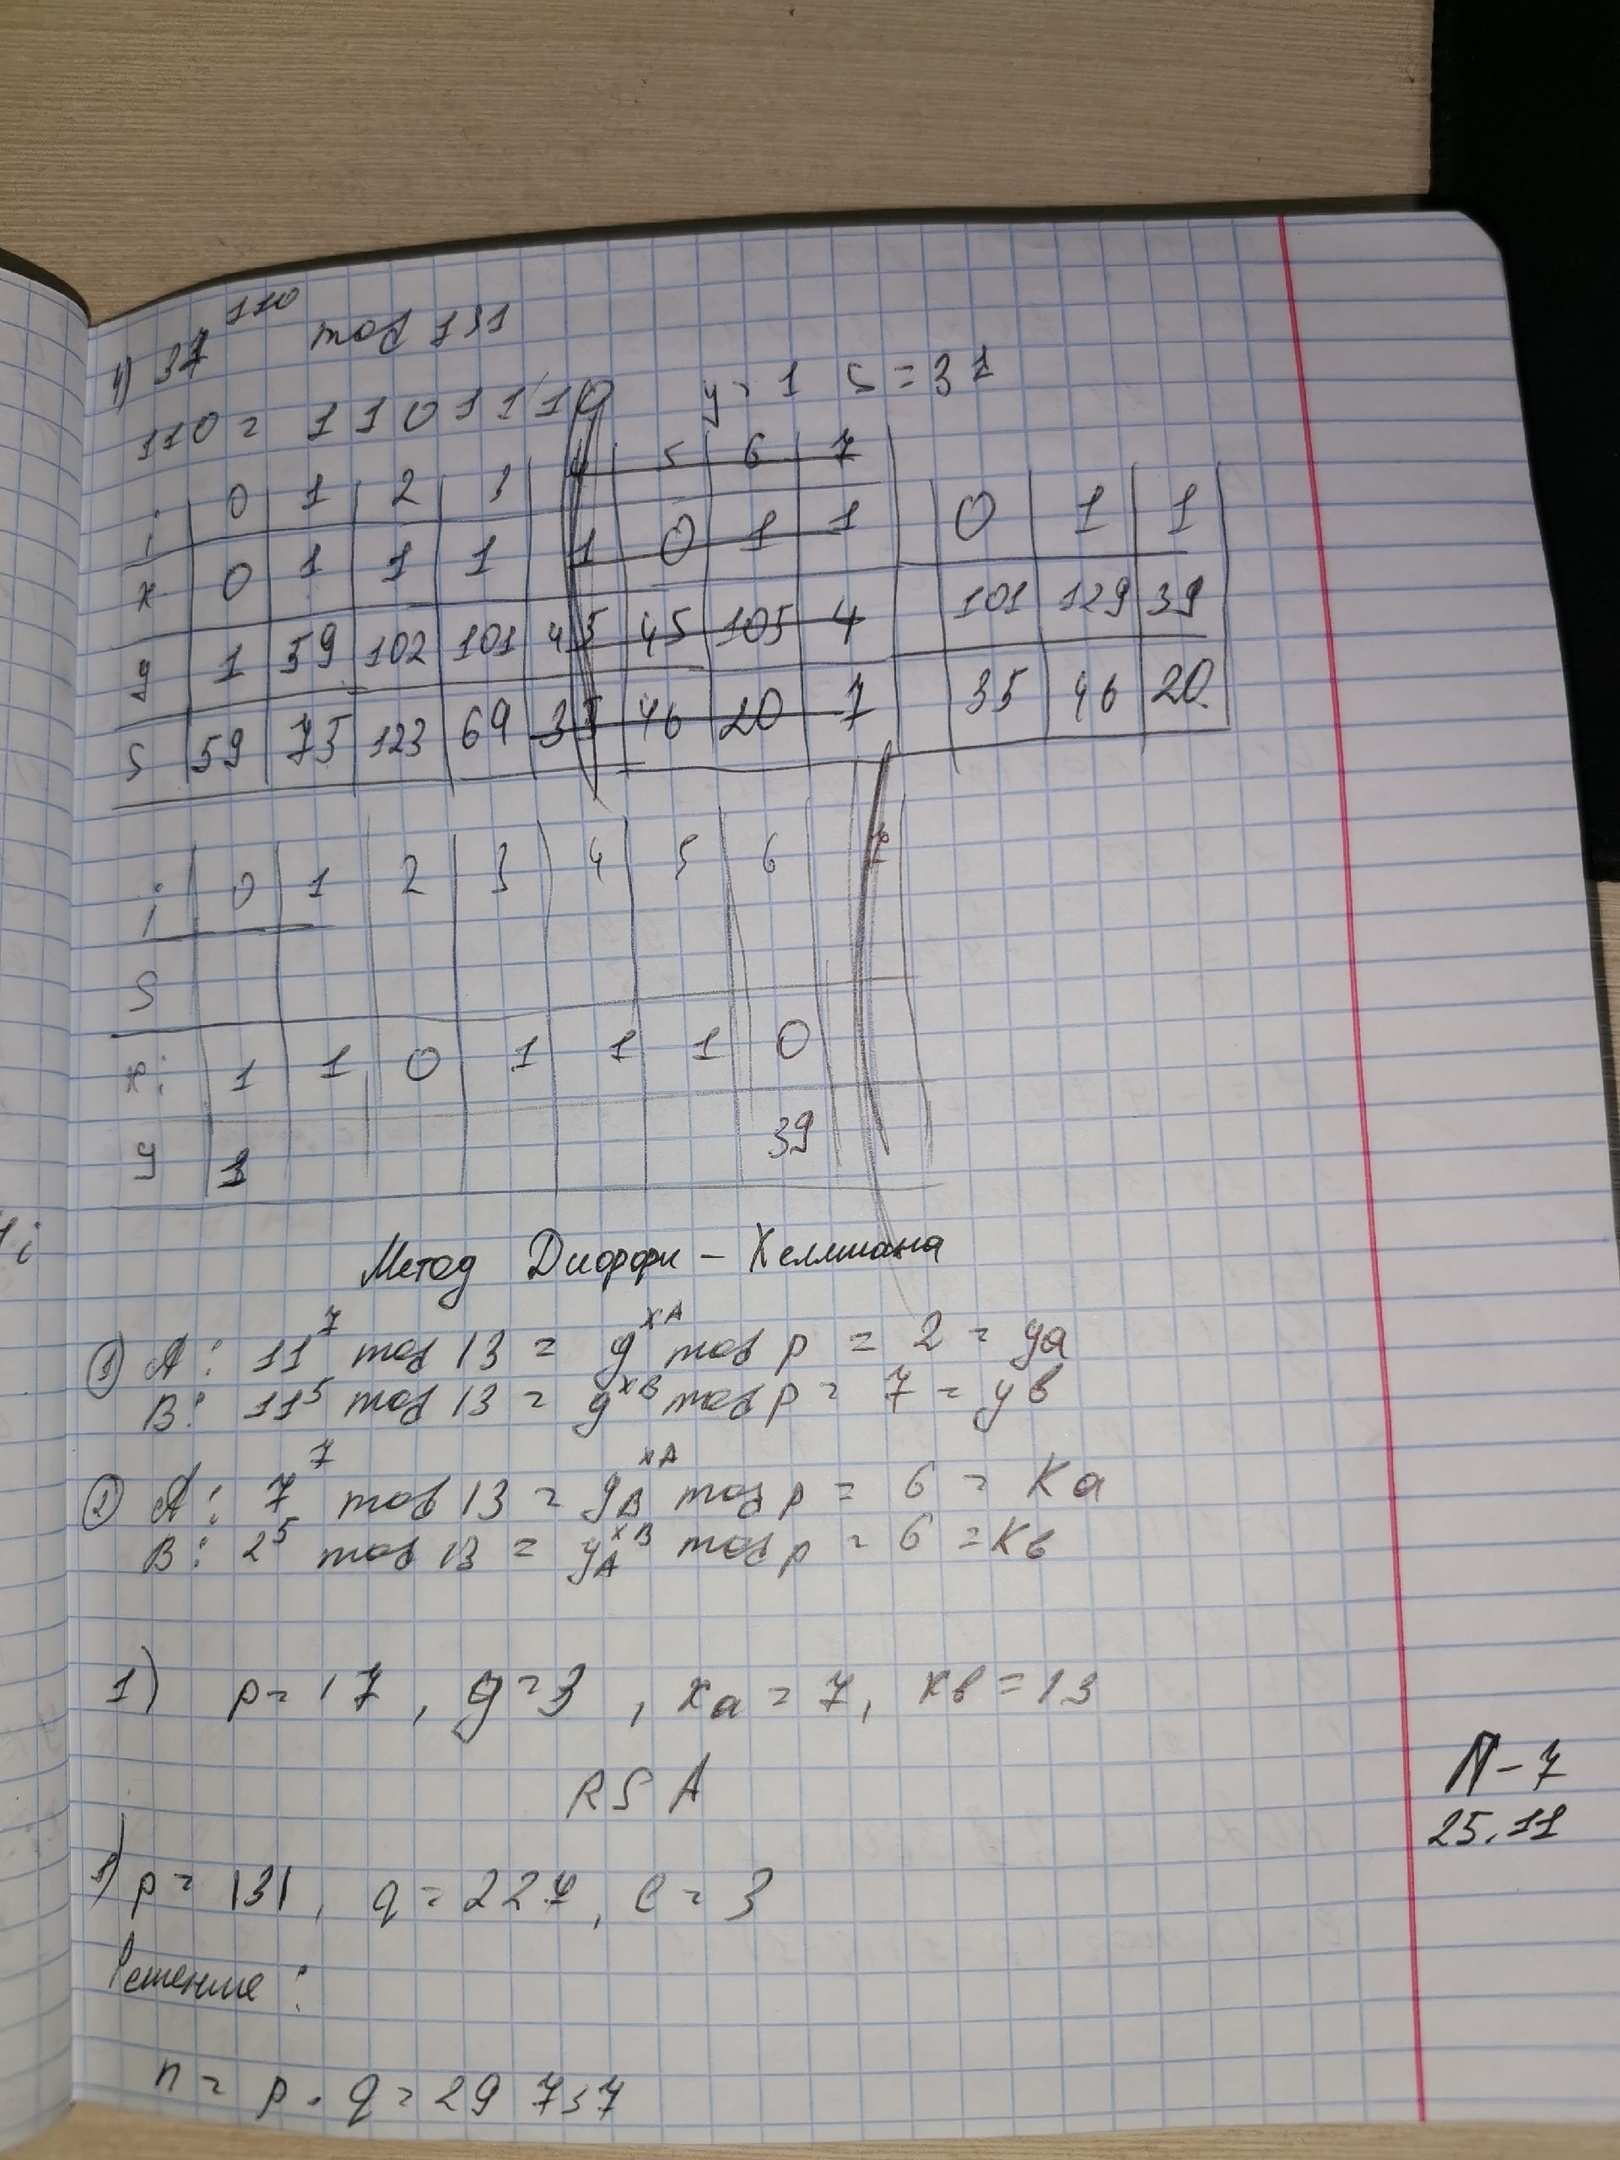 4) 37^110 mod 131
110 = 1101110 y = 1 S = 37
i 0 1 2 3 5 6 7
x 0 1 1 1 1 0 1 1 0 1 1
y 1 59 102 101 45 45 105 4 101 129 39
S 59 75 123 69 35 46 20 7 35 46 20
i 0 1 2 3 4 5 6 7
S
x: 1 1 0 1 1 1 0
y 1 39
1i
Метод Диффи - Хеллмана
① A: 11^7 mod 13 = g^xA mod p = 2 = ya
B: 11^5 mod 13 = g^xB mod p = 7 = yв
② A: 7^7 mod 13 = y_B^xA mod p = 6 = Ka
B: 2^5 mod 13 = y_A^xB mod p = 6 = Kв
1) p = 17, g = 3, xa = 7, xв = 13
RSA
П-7
25.11
1) p = 131, q = 227, e = 3
Решение:
n = p · q = 29 737